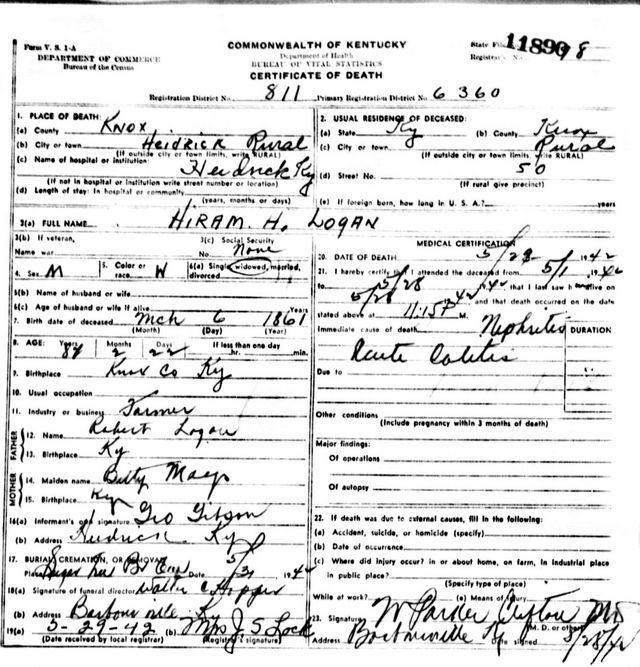 Form V. S. 1-A
DEPARTMENT OF COMMERCE
Bureau of the Census
COMMONWEALTH OF KENTUCKY
Department of Health
BUREAU OF VITAL STATISTICS
CERTIFICATE OF DEATH
State File 11890
Registrar No. 78
Registration District No. 811 Primary Registration District No. 6360
1. PLACE OF DEATH:
(a) County KNOX
(b) City or town Heidrick Rural
(If outside city or town limits, write RURAL)
(c) Name of hospital or institution: Heidrick Ky
(If not in hospital or institution write street number or location)
(d) Length of stay: In hospital or community
(years, months or days)
2. USUAL RESIDENCE OF DECEASED:
(a) State Ky (b) County Knox
(c) City or town Rural
(If outside city or town limits, write RURAL)
(d) Street No. 50
(If rural give precinct)
(e) If foreign born, how long in U. S. A.? years
3(a) FULL NAME HIRAM. H. LOGAN
3(b) If veteran,
Name war
3(c) Social Security
No. None
4. Sex M 5. Color or race W 6(a) Single, widowed, married, divorced
6(b) Name of husband or wife
6(c) Age of husband or wife if alive Years
7. Birth date of deceased Mch 6 1861
(Month) (Day) (Year)
8. AGE: Years Months 2 Days 22 If less than one day
hr. min.
9. Birthplace Knox Co Ky
10. Usual occupation
11. Industry or business Farmer
FATHER
12. Name Robert Logan
13. Birthplace Ky
MOTHER
14. Maiden name Betty Mays
15. Birthplace Ky
16(a) Informant's own signature Geo Gibson
(b) Address Heidrick Ky
17. BURIAL, CREMATION, OR REMOVAL
Place Date 5/31 1942
18(a) Signature of funeral director Walter C Hopper
(b) Address Barbourville Ky
19(a) 5-29-42 (b) Mrs J. S. Lock
(Date received by local registrar) (Registrar's signature)
MEDICAL CERTIFICATION
20. DATE OF DEATH 5/28- 1942
21. I hereby certify that I attended the deceased from 5/1 1942
to 5/28 1942 that I last saw him alive on
5/28 1942 and that death occurred on the date
stated above at 11:15P M.
Immediate cause of death Nephritis DURATION
Acute Colitis
Due to
Other conditions
(Include pregnancy within 3 months of death)
Major findings:
Of operations
Of autopsy
22. If death was due to external causes, fill in the following:
(a) Accident, suicide, or homicide (specify)
(b) Date of occurrence
(c) Where did injury occur? in or about home, on farm, in industrial place
in public place?
(Specify type of place)
While at work? (e) Means of Injury
23. Signature W Parker MD
(M. D. or other)
Address Barbourville Ky Date signed 5/28/42